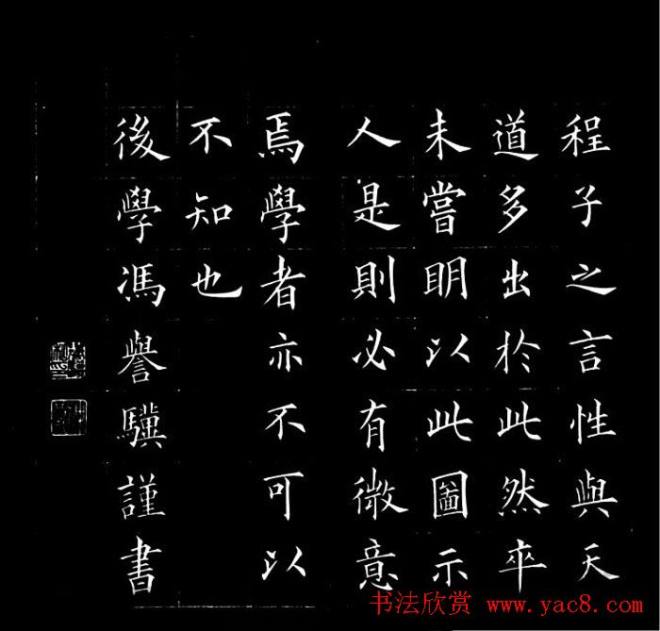 程子之言性與天
道多出於此然卒
未嘗明以此圖示
人是則必有微意
焉學者亦不可以
不知也
後學馮譽驥謹書
书法欣赏 www.yac8.com